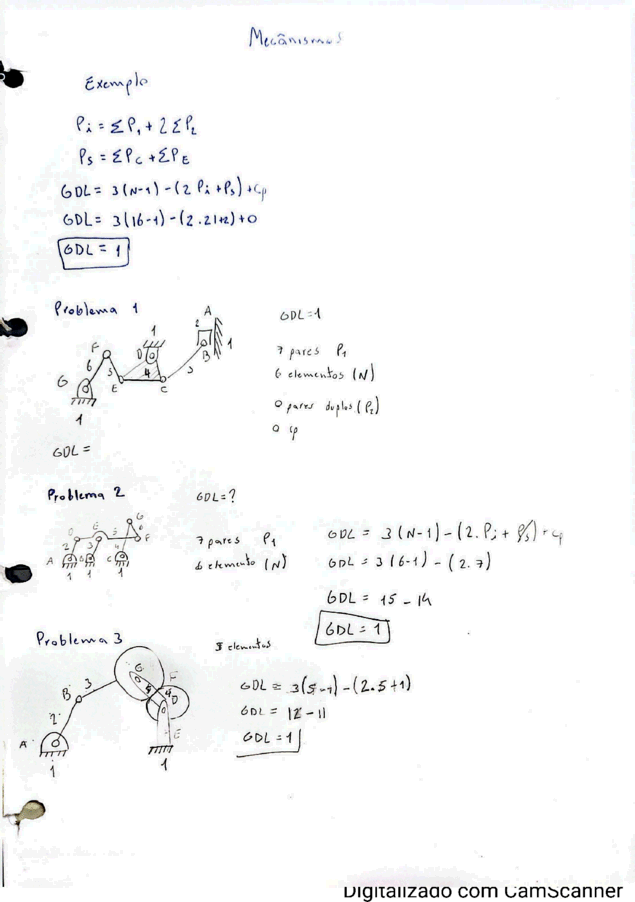 Mecânismos
Exemplo
Pi = ΣP1 + 2ΣP2
Ps = ΣPC + ΣPE
GDL = 3(N-1) - (2Pi + Ps) + Cp
GDL = 3(16-1) - (2.21+2) + 0
GDL = 1
Problema 1
GDL=1
7 pares P1
6 elementos (N)
0 pares duplos (P2)
0 Cp
A
2
1
B
1
D
F
6
5
4
3
G
E
C
1
GDL =
Problema 2
GDL = ?
7 pares P1
6 elemento (N)
GDL = 3(N-1) - (2.Pi + Ps) + Cp
GDL = 3(6-1) - (2.7)
GDL = 15 - 14
GDL = 1
G
D
E
5
6
F
2
3
4
A
B
C
1
1
1
Problema 3
5 elementos
GDL = 3(5-1) - (2.5+1)
GDL = 12 - 11
GDL = 1
G
F
B
3
4
D
2
E
A
1
1
Digitalizado com CamScanner